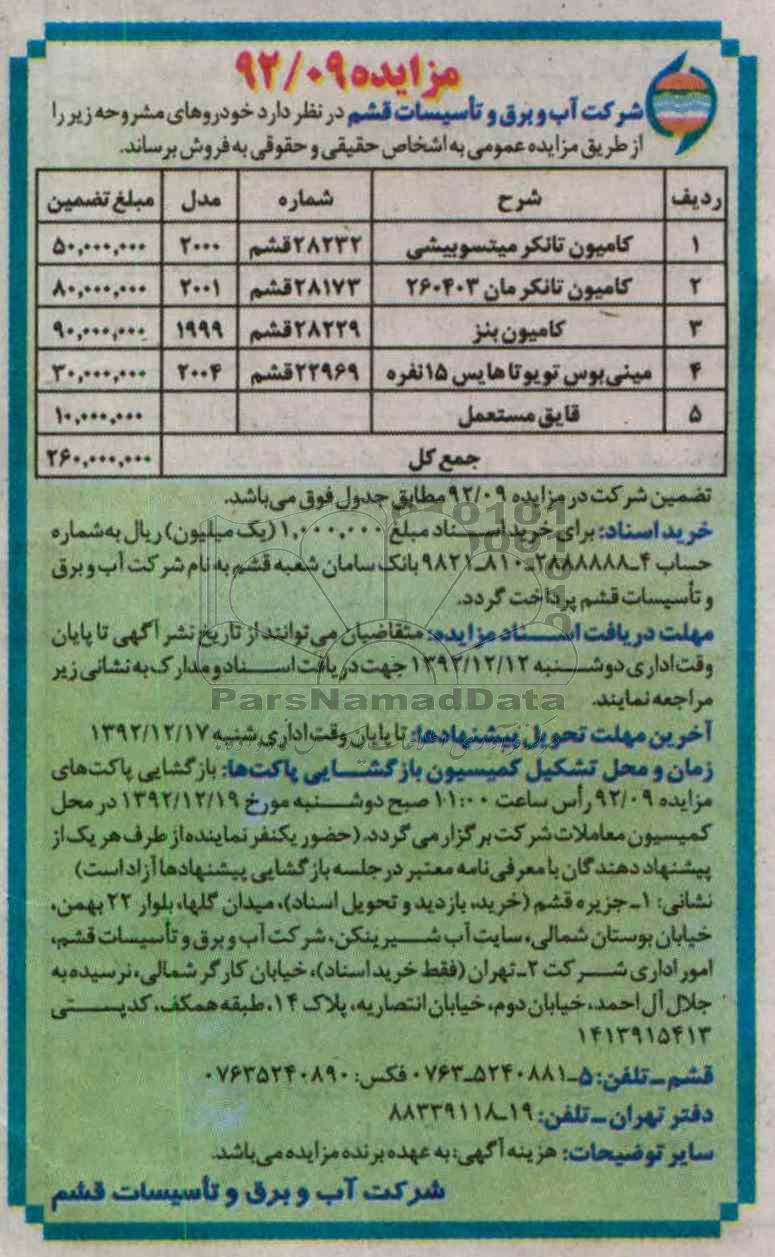 مزایده ۹۲/۰۹
شرکت آب و برق و تأسیسات قشم در نظر دارد خودروهای مشروحه زیر را
از طریق مزایده عمومی به اشخاص حقیقی و حقوقی به فروش برساند.
ردیف شرح شماره مدل مبلغ تضمین
۱ کامیون تانکر میتسوبیشی ۲۸۲۳۲قشم ۲۰۰۰ ۵۰,۰۰۰,۰۰۰
۲ کامیون تانکر مان ۲۶۰۴۰۳ ۲۸۱۷۳قشم ۲۰۰۱ ۸۰,۰۰۰,۰۰۰
۳ کامیون بنز ۲۸۲۲۹قشم ۱۹۹۹ ۹۰,۰۰۰,۰۰۰
۴ مینی‌بوس تویوتا هایس ۱۵نفره ۲۲۹۶۹قشم ۲۰۰۴ ۳۰,۰۰۰,۰۰۰
۵ قایق مستعمل ۱۰,۰۰۰,۰۰۰
جمع کل ۲۶۰,۰۰۰,۰۰۰
تضمین شرکت در مزایده ۹۲/۰۹ مطابق جدول فوق می‌باشد.
خرید اسناد: برای خرید اسناد مبلغ ۱,۰۰۰,۰۰۰ (یک میلیون) ریال به شماره
حساب ۴-۲۸۸۸۸۸۸-۸۱۰-۹۸۲۱ بانک سامان شعبه قشم به نام شرکت آب و برق
و تأسیسات قشم پرداخت گردد.
مهلت دریافت اسناد مزایده: متقاضیان می‌توانند از تاریخ نشر آگهی تا پایان
وقت اداری دوشنبه ۱۳۹۲/۱۲/۱۲ جهت دریافت اسناد و مدارک به نشانی زیر
مراجعه نمایند.
ParsNamadData
آخرین مهلت تحویل پیشنهادها: تا پایان وقت اداری شنبه ۱۳۹۲/۱۲/۱۷
زمان و محل تشکیل کمیسیون بازگشایی پاکت‌ها: بازگشایی پاکت‌های
مزایده ۹۲/۰۹ رأس ساعت ۱۱:۰۰ صبح دوشنبه مورخ ۱۳۹۲/۱۲/۱۹ در محل
کمیسیون معاملات شرکت برگزار می گردد. (حضور یکنفر نماینده از طرف هر یک از
پیشنهاد دهندگان با معرفی‌نامه معتبر در جلسه بازگشایی پیشنهادها آزاد است)
نشانی: ۱-جزیره قشم (خرید، بازدید و تحویل اسناد)، میدان گلها، بلوار ۲۲ بهمن،
خیابان بوستان شمالی، سایت آب شیرینکن، شرکت آب و برق و تأسیسات قشم،
امور اداری شرکت ۲-تهران (فقط خرید اسناد)، خیابان کارگر شمالی، نرسیده به
جلال آل احمد، خیابان دوم، خیابان انتصاریه، پلاک ۱۴، طبقه همکف، کدپستی
۱۴۱۳۹۱۵۴۱۳
قشم - تلفن: ۵-۵۲۴۰۸۸۱-۰۷۶۳ فکس: ۰۷۶۳۵۲۴۰۸۹۰
دفتر تهران - تلفن: ۱۹-۸۸۳۳۹۱۱۸
سایر توضیحات: هزینه آگهی: به عهده برنده مزایده می‌باشد.
شرکت آب و برق و تأسیسات قشم